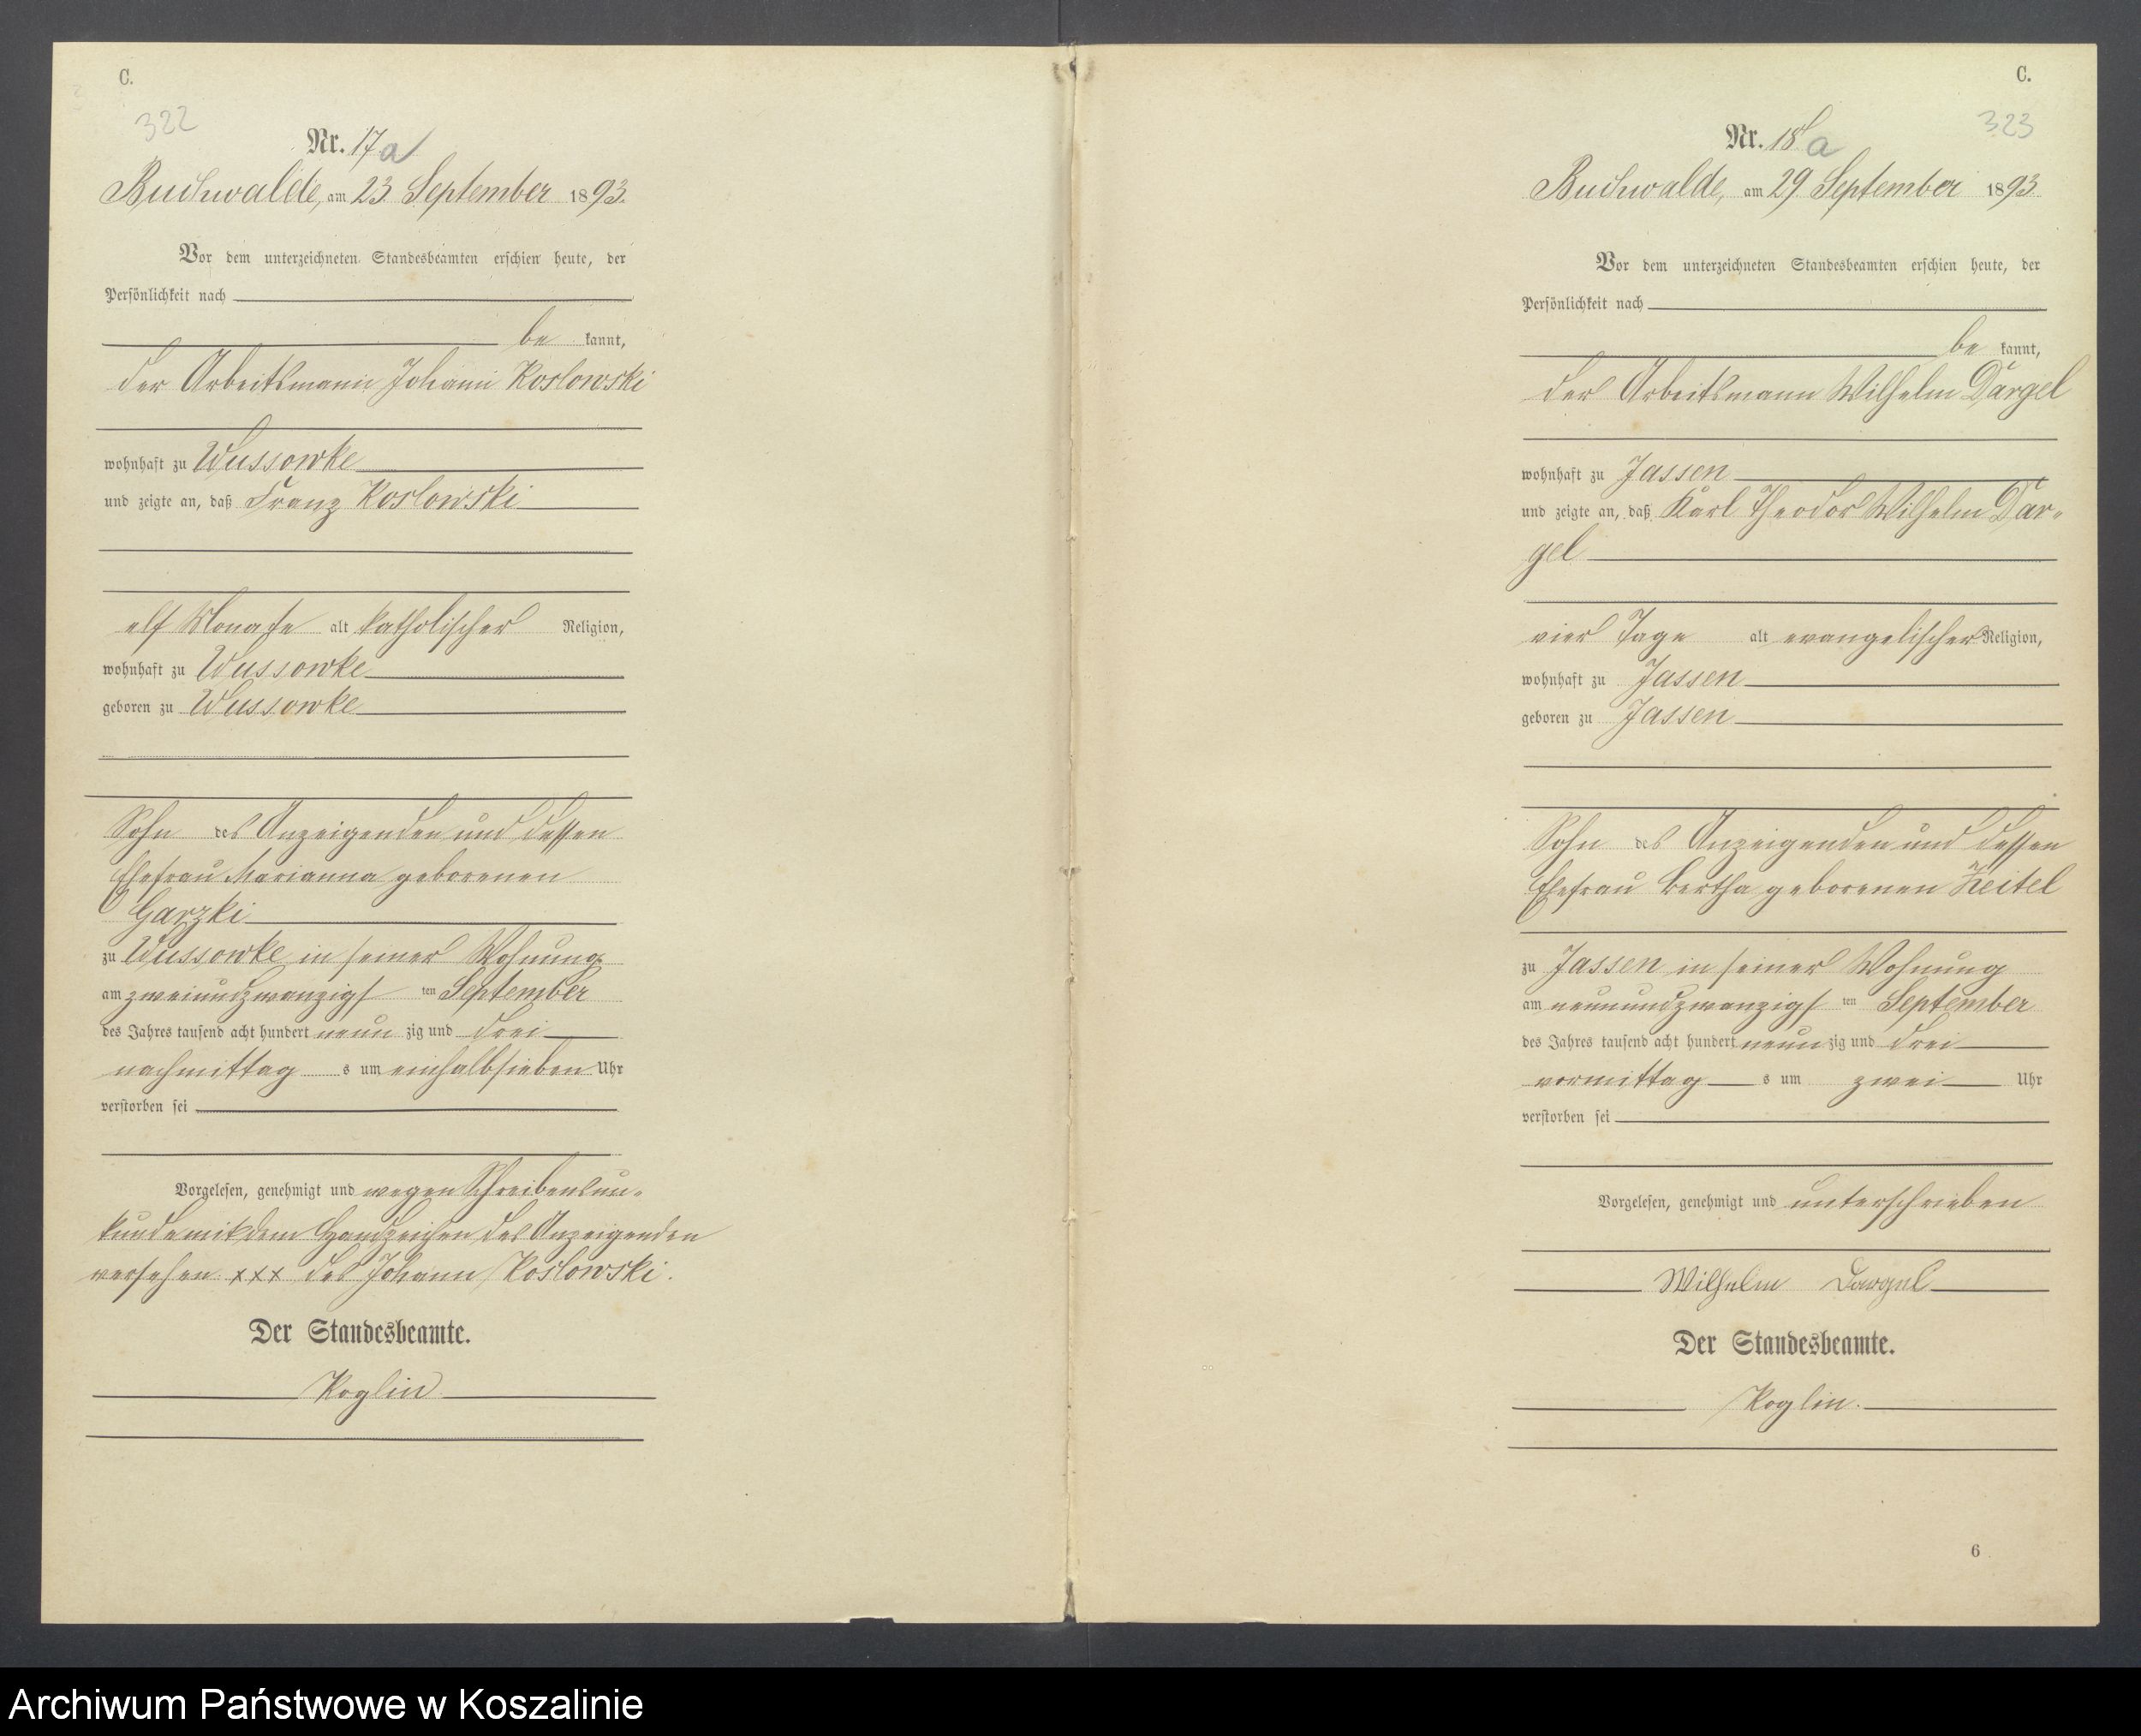 C.
322
Nr. 17 a
Buchwalde, am 23 September 1893.
Vor dem unterzeichneten Standesbeamten erschien heute, der
Persönlichkeit nach
be kannt,
der Arbeitsmann Johann Koslowski
wohnhaft zu Wussowke
und zeigte an, daß Franz Koslowski
elf Monate alt katholischer Religion,
wohnhaft zu Wussowke
geboren zu Wussowke
Sohn des Anzeigenden und dessen
Ehefrau Marianna geborenen
Garzki
zu Wussowke in seiner Wohnung
am zweiundzwanzigsten September
des Jahres tausend acht hundert neunzig und drei
nachmittags um einhalbsieben Uhr
verstorben sei
Vorgelesen, genehmigt und wegen Schreibensun-
kunde mit dem Handzeichen des Anzeigenden
versehen xxx des Johann Koslowski.
Der Standesbeamte.
Koglin
C.
323
Nr. 18 a
Buchwalde, am 29. September 1893
Vor dem unterzeichneten Standesbeamten erschien heute, der
Persönlichkeit nach
be kannt,
der Arbeitsmann Wilhelm Dargel
wohnhaft zu Jassen
und zeigte an, daß Karl Theodor Wilhelm Dar-
gel
vier Tage alt evangelischer Religion,
wohnhaft zu Jassen
geboren zu Jassen
Sohn des Anzeigenden und dessen
Ehefrau Bertha geborenen Keitel
zu Jassen in seiner Wohnung
am neunundzwanzigsten September
des Jahres tausend acht hundert neunzig und drei
vormittags um zwei Uhr
verstorben sei
Vorgelesen, genehmigt und unterschrieben
Wilhelm Dargel
Der Standesbeamte.
Koglin.
6
Archiwum Państwowe w Koszalinie